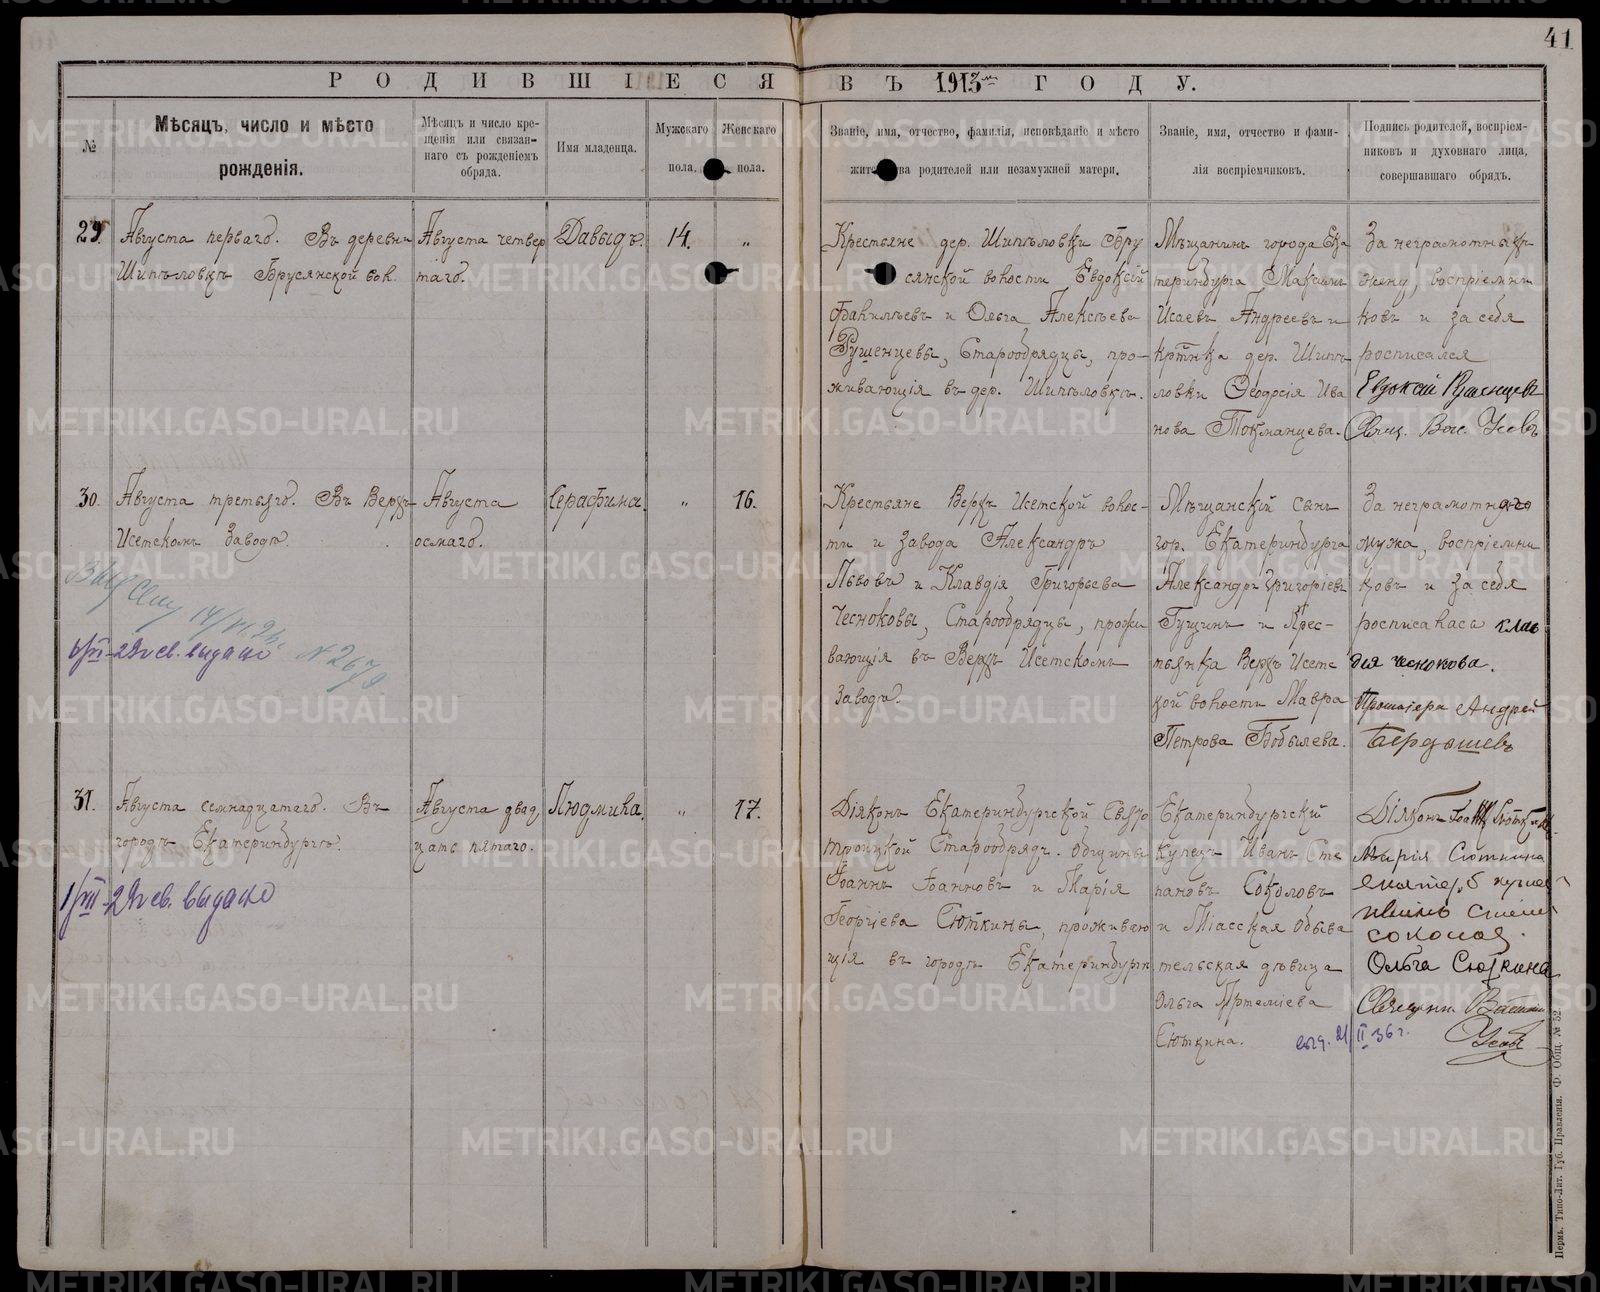 41
РОДИВШІЕСЯ ВЪ 1913 ГОДУ.
№
Мѣсяцъ, число и мѣсто рожденія.
Мѣсяцъ и число крещенія или связаннаго съ рожденіемъ обряда.
Имя младенца.
Мужскаго пола.
Женскаго пола.
Званіе, имя, отчество, фамилія, исповѣданіе и мѣсто
ва родителей или незамужней матери.
Званіе, имя, отчество и фамилія воспріемчиковъ.
Подпись родителей, воспріемниковъ и духовнаго лица, совершавшаго обрядъ.
29.
Августа перваго. Въ деревни
Шипѣловкѣ Брусянской вол.
Августа четвер
таго.
Давыдъ.
14.
„
Крестьяне дер. Шипѣловки Бру
сянской волости Евдоксій
и Ольга Алексѣева
Рушенцевы, Старообрядцы, про-
живающія въ дер. Шипѣловкѣ.
Мѣщанинъ города Ека
теринбурга Максимъ
Исаевъ Андреевъ и
кртнка дер. Шипѣ
ловки Ѳеодосія Ива
нова Токманцева.
За неграмотную
жену, воспріемни
ковъ и за себя
росписался
Евдоксій Рушенцевъ
Свящ. Вас. Усовъ
30.
Августа третьяго. Въ Верхъ-
Исетскомъ Заводѣ.
Августа
осмаго.
Серафима.
„
16.
Крестьяне Верхъ Исетской волос-
ти и завода Александръ
Львовъ и Клавдія Григорьева
Чесноковы, Старообрядцы, прожи
вающія въ Верхъ Исетскомъ
Заводѣ.
Мѣщанскій сынъ
гор. Екатеринбурга
Александръ Григоріевъ
Гущинъ и Крес-
тьянка Верхъ Исетс
кой волости Мавра
Петрова Бобылева.
За неграмотнаго
мужа, воспріемни
ковъ и за себя
росписалася Клав
дія Чеснокова.
Андрей
Бердышевъ
14/VI 2
№ 2679
св. выдано
31.
Августа семнадцатаго. Въ
городѣ Екатеринбургѣ.
Августа двад
цать пятаго.
Людмила.
„
17.
Діяконъ Екатеринбургской Свято
троицкой Старообряд. общины
Іоаннъ Іоанновъ и Марія
Георгіева Сюткины, проживаю
щія въ городѣ Екатеринбургѣ
Екатеринбургскій
купецъ Иванъ Сте
пановъ Соколовъ
и Міасская обыва
тельская дѣвица
Ольга Артеміева
Сюткина.
Діяконъ Іоаннъ Сюткинъ
Марія Сюткина
Ольга Сюткина
Священникъ Василій
Усовъ
св. выдано
выд. 21/II 36 г.
Пермь. Типо-Лит. Губ. Правленія. Ф. Общ. № 52.
METRIKI.GASO-URAL.RU